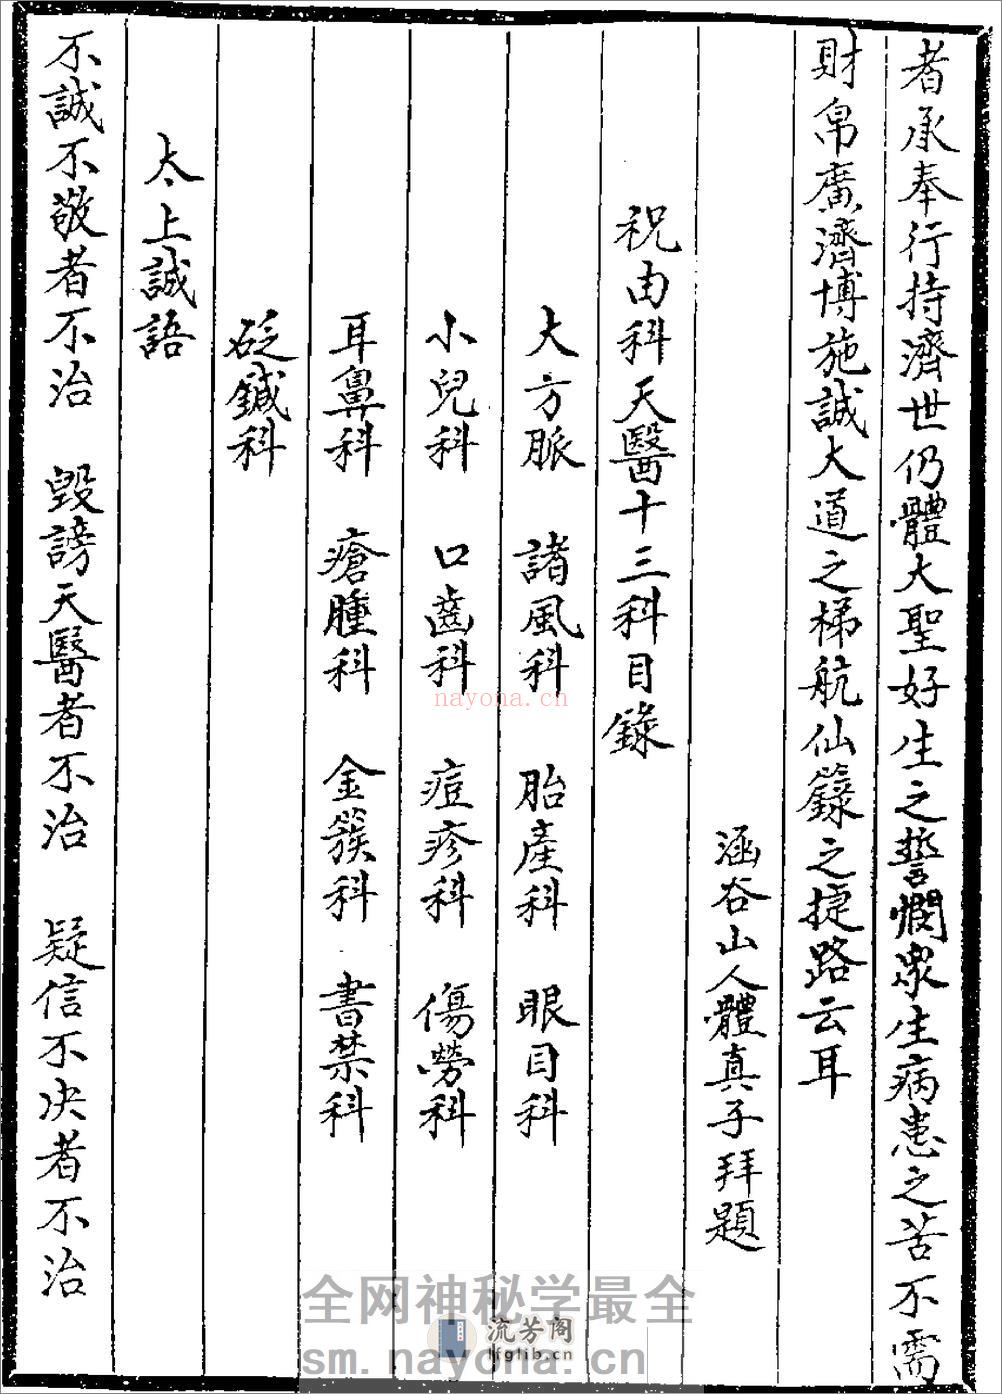 者承奉行持濟世仍體大聖好生之誓憫衆生病患之苦不需
財帛廣濟博施誠大道之梯航仙籙之捷路云耳
涵谷山人體真子拜題
祝由科天醫十三科目錄
大方脈 諸風科 胎產科 眼目科
小兒科 口齒科 痘疹科 傷勞科
耳鼻科 瘡腫科 金簇科 書禁科
砭鍼科
太上誠語
不誠不敬者不治 毀謗天醫者不治 疑信不决者不治
nayona.cn
全网神秘学最全
流芳阁
lfglib.cn
sm.nayona.cn